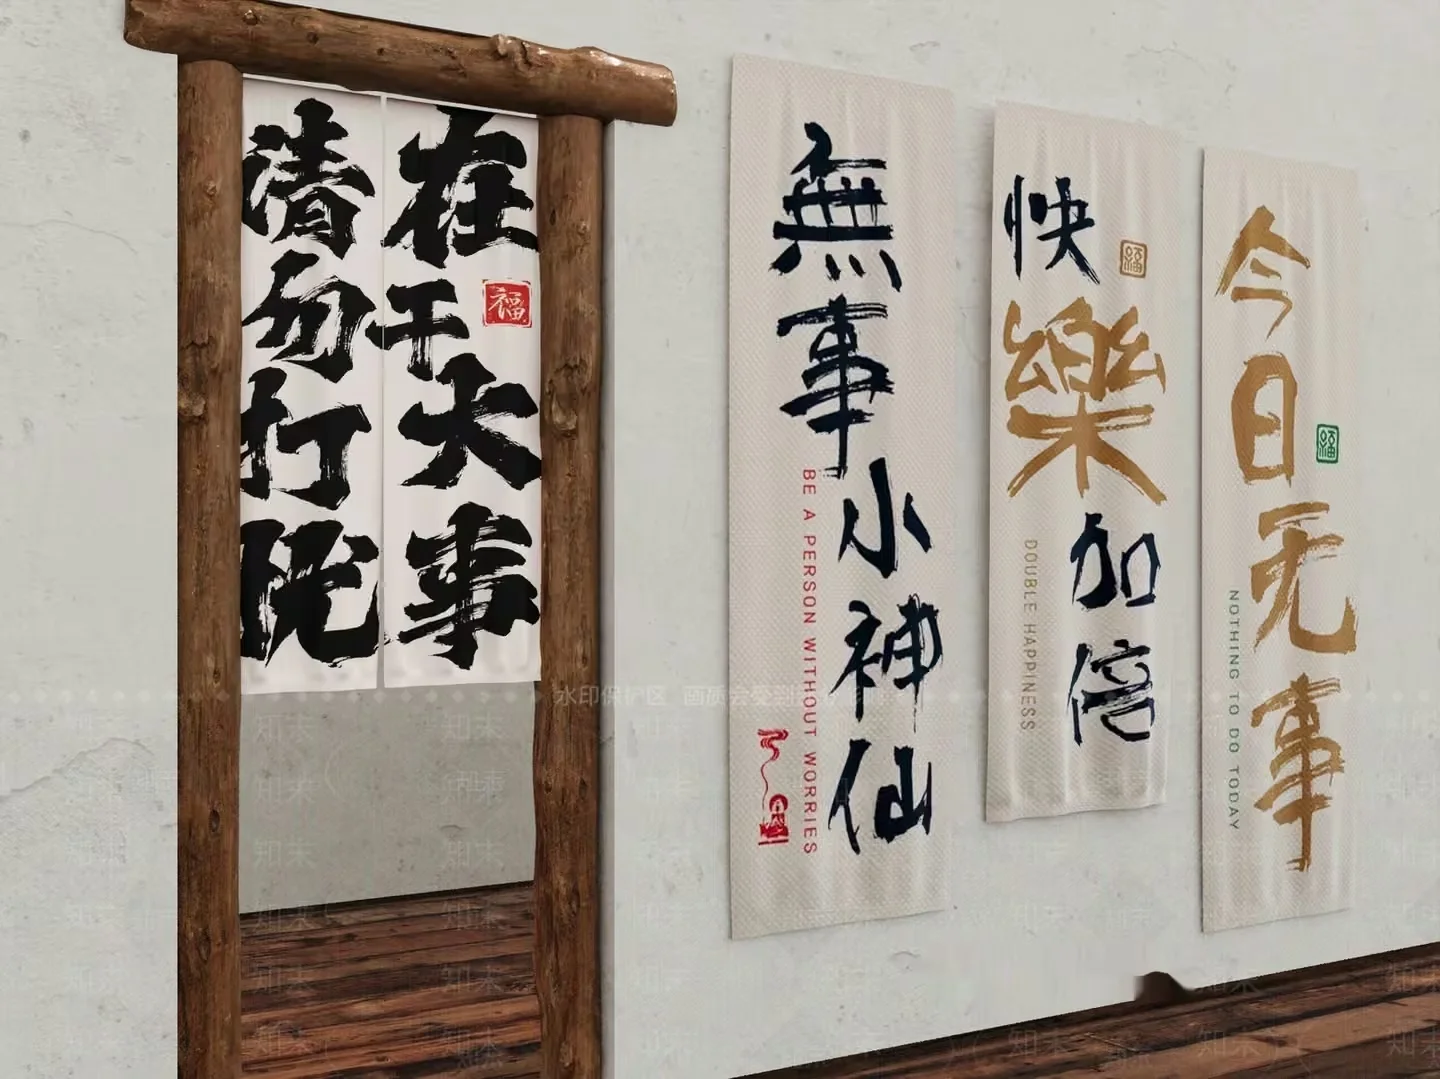 在干大事
福
请勿打扰
無事小神仙
BE A PERSON WITHOUT WORRIES
快樂加倍
福
DOUBLE HAPPINESS
今日无事
福
NOTHING TO DO TODAY
水印保护区 画质会受到
知末